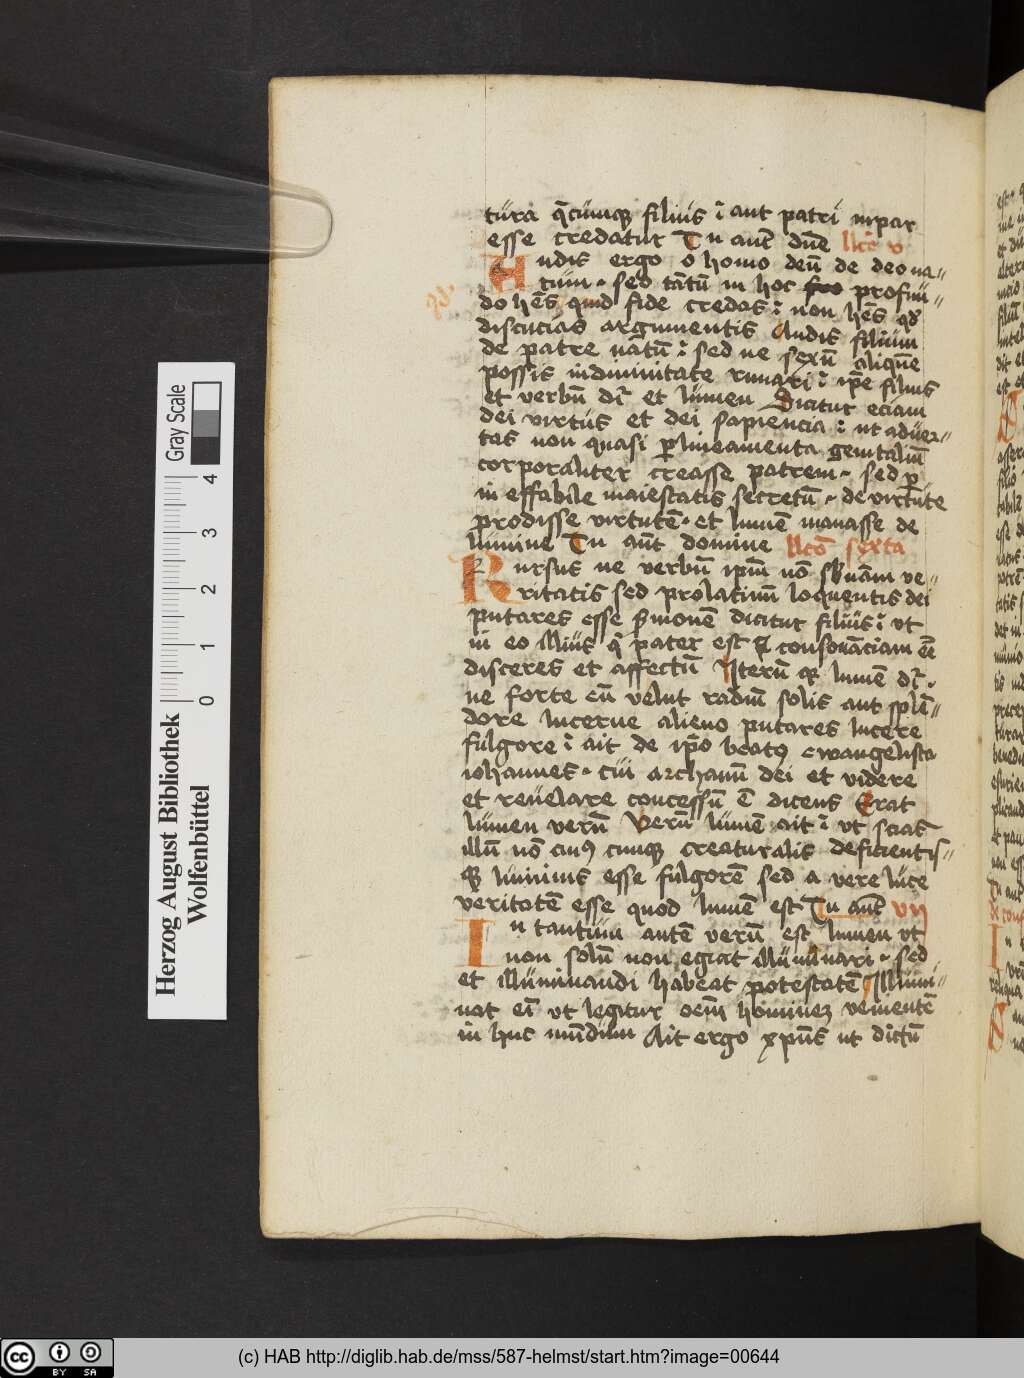 tura q̄cumq; filius ī aut patri inpar
esse credatur Tu aut dn̄e lc̄o v
Audis ergo o homo deū de deo na⸗
tum · sed tātū in hoc profun⸗
do hēs quid fide credas ī non hēs qd
discucias argumentis Audis filium
de patre natū ī sed ne sexū aliquē
possis in diuinitate rimari ī ipē filius
et verbū dr̄ et lumen Dicitur eciam
dei virtus et dei sapiencia ī ut aduer⸗
tas non quasi plineamenta genitaliū
corporaliter creasse patrem · sed p
in effabile maiestatis secretū · de virtute
prodisse virtutē · et lumē manasse de
lumine Tu aūt domine lc̄o sexta
Rursus ne verbū ipm̄ nō sbnām ve⸗
ritatis sed prolatiuū loquentis dei
putares esse smonē dicitur filius ī vt
in eo illius q̄ pater est consonāciam
disceres et affectū Iterū q; lumē dr̄ ·
ne forte cū velut radiū solis aut splē⸗
dore lucerne alieno putares lucere
fulgore ī ait de ipō beatꝰ ewangelista
iohannes · cui archanū dei et videre
et reuelare concessū ē dicens Erat
lumen verū Verū lumē ait ī vt scias
illū nō cuiꝰ cumq; creaturalis deficientis⸗
q; luminis esse fulgorē sed a vere luce
veritatē esse quod lumē est Tu aūt vij
In tantum autē verū est lumen vt
non solū non egeat illuminari · sed
et illuminandi habeat potestatē Illumi⸗
nat eī vt legitur oēm hominez venientē
in hunc mūdum Ait ergo xpūs ut dictū
q̄d
Herzog August Bibliothek
Wolfenbüttel
Gray Scale
0 1 2 3 4
(c) HAB http://diglib.hab.de/mss/587-helmst/start.htm?image=00644
cc BY SA